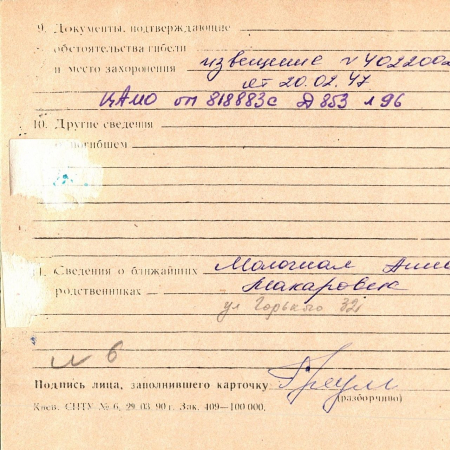 9. Документы, подтверждающие
обстоятельства гибели
и место захоронения извещение № 4022002
от 20.02.47
ЦАМО оп 818883с Д 853 л 96
10. Другие сведения
погибшем
Сведения о ближайших
родственниках
ул Горького 32
№ 6
Подпись лица, заполнившего карточку
(разборчиво)
Киев. СПТУ № 6, 29. 03. 90 г. Зак. 409—100 000.